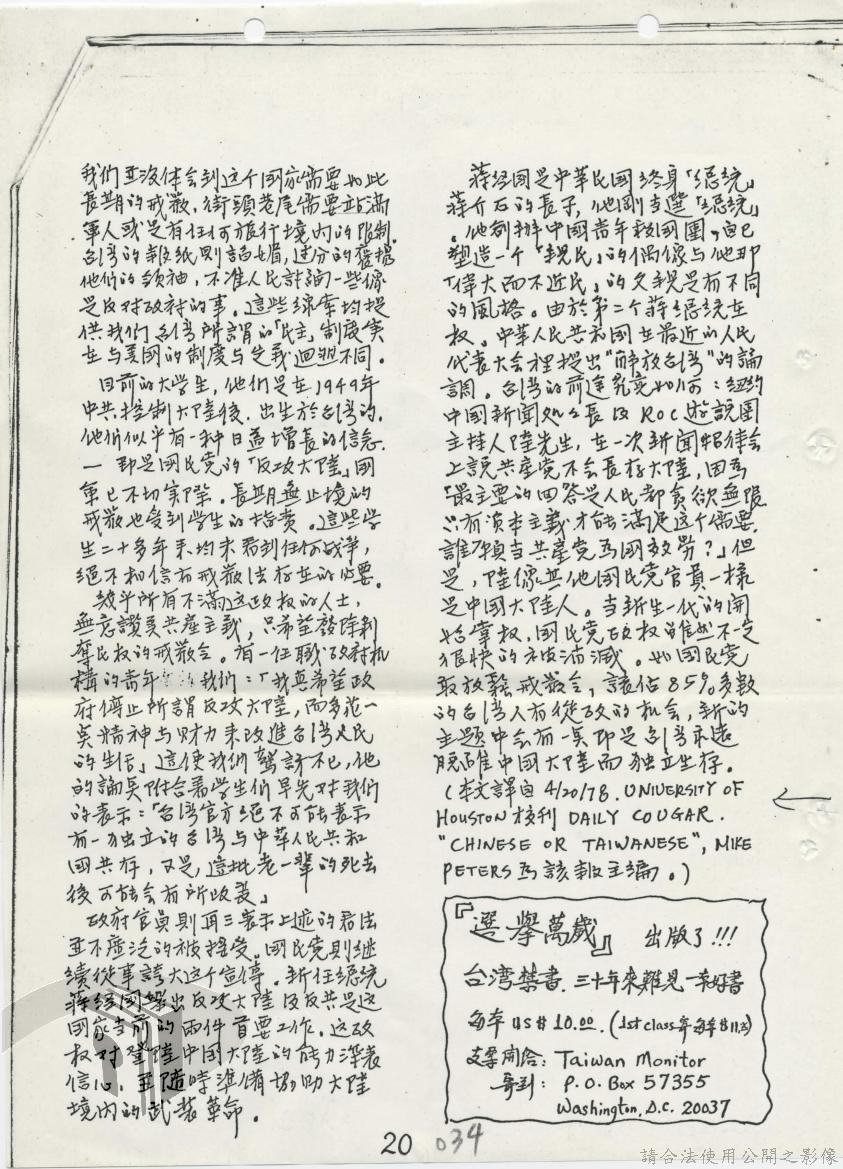 我们並沒体会到这个國家需要如此
長期的戒嚴，街頭巷尾需要站滿
軍人或是有任何旅行境内的限制.
台湾的報紙則諂媚，过分的擁擠
他們的領袖，不准人民討論一些像
是反对政府的事。這些線索均提
供我們台湾所謂的「民主」制度实
在与美國的制度与定義迥然不同。
目前的大学生，他們是在1949年
中共控制大陸後.出生於台湾的.
他們似乎有一种日益增長的信念.
一 即是國民党的「反攻大陸」國
策已不切实際。長期無止境的
戒嚴也受到学生的指責。這些学
生二十多年来均未看到任何战争，
絕不相信有戒嚴法存在的必要。
幾乎所有不滿这政权的人士，
無意讚美共產主義，只希望廢除剥
奪民权的戒嚴令。有一任職政府机
構的青年 我們：「我真希望政
府停止所謂反攻大陸，而多花一
奌精神与財力来改進台湾人民
的生活」這使我們驚訝不已，他
的論奌附合着学生們早先对我們
的表示：「台湾官方絕不可能表示
有一独立的台湾与中華人民共和
國共存，又是，這批老一輩的死去
後可能会有所改善」
政府官員則再三表示上述的看法
並不廣泛的被接受。國民党則继
續從事誇大这个宣傳。新任總統
蔣經國 出反攻大陸及反共是这
國家当前的兩件首要工作。这政
权对登陸中國大陸的能力深表
信心，並隨時準備協助大陸
境内的武装革命。
蔣经國是中華民國終身「總統」
蔣介石的長子，他剛当選「總統」
.他創辦中國青年救國團，自己
塑造一个「親民」的偶像与他那
「偉大而不近民」的父親是有不同
的風格。由於第二个蔣總統在
权。中華人民共和國在最近的人民
代表大会裡提出"解放台湾"的論
調。台湾的前途究竟如何：紐約
中國新聞処処長及ROC遊說團
主持人陸先生，在一次新聞招待会
上說共產党不会長存大陸，因爲
「最主要的回答是人民都貪欲無限
只有資本主義才能滿足这个需要.
誰願当共產党爲國效勞？」但
是，陸像其他國民党官員一樣
是中國大陸人。当新生一代的開
始掌权，國民党政权雖然不一定
很快的被消滅。如國民党
取放鬆戒嚴令，該佔85%多数
的台湾人有從政的机会，新的
主題中会有一奌即是台湾永遠
脫離中國大陸而独立生存。
(本文譯自 4/20/78. UNIVERSITY OF
HOUSTON 校刊 DAILY COUGAR.
"CHINESE OR TAIWANESE", MIKE
PETERS 爲該報主編。)
『選舉萬歲』 出版了!!!
台湾禁書.三十年來難見一本好書
每本 US$ 10.00. (1st class寄每本$11.25)
支票開给：Taiwan Monitor
寄到：P.O. Box 57355
Washington, D.C. 20037
20 034
請合法使用公開之影像